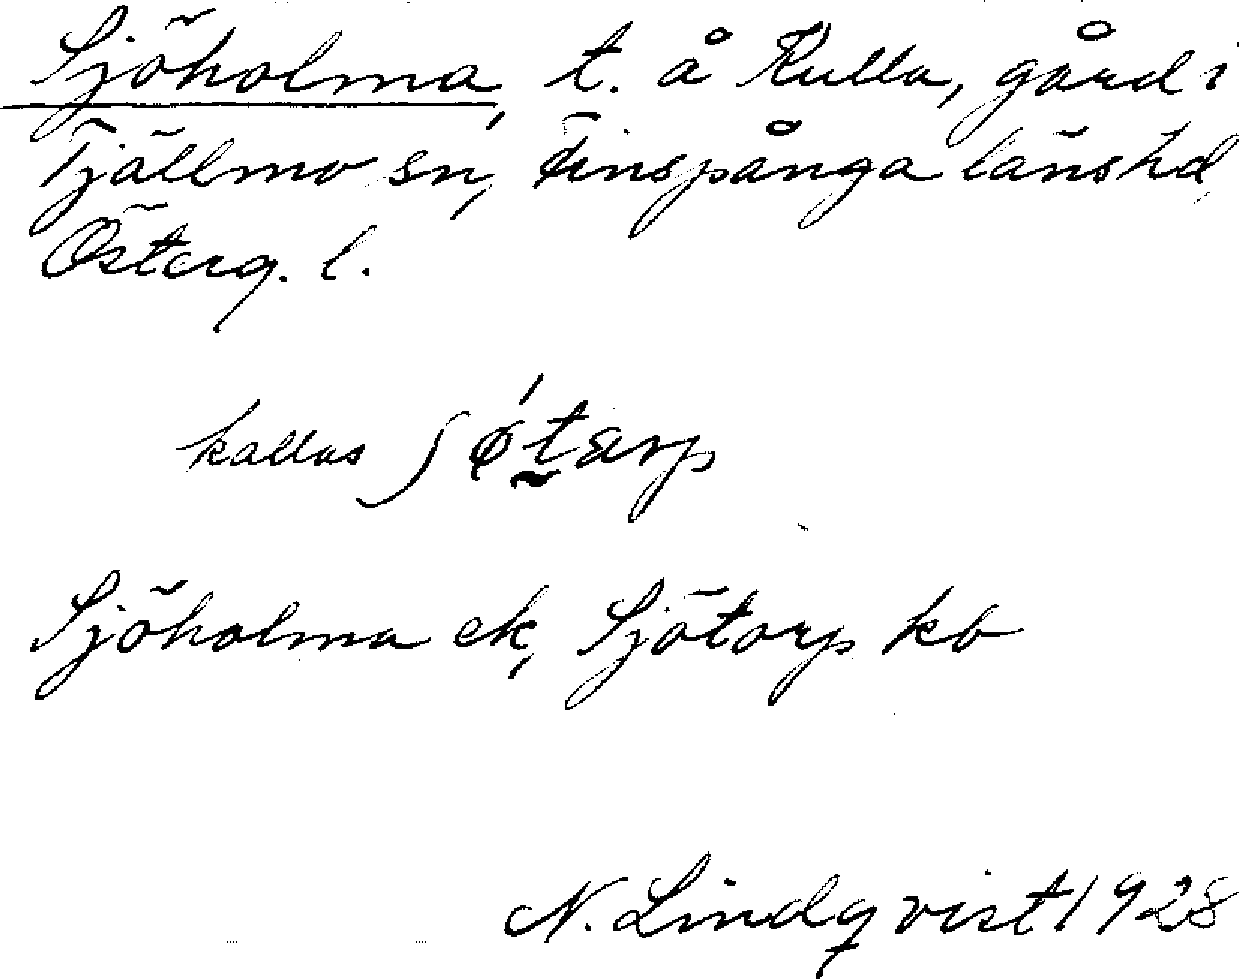 Sjöholma, t. å Kulla, gård i
Tjällmo sn, Finspånga länshd,
Österg. l.
kallas ʃǿt̰arp
Sjöholma ek, Sjötorp kb
N. Lindqvist 1928